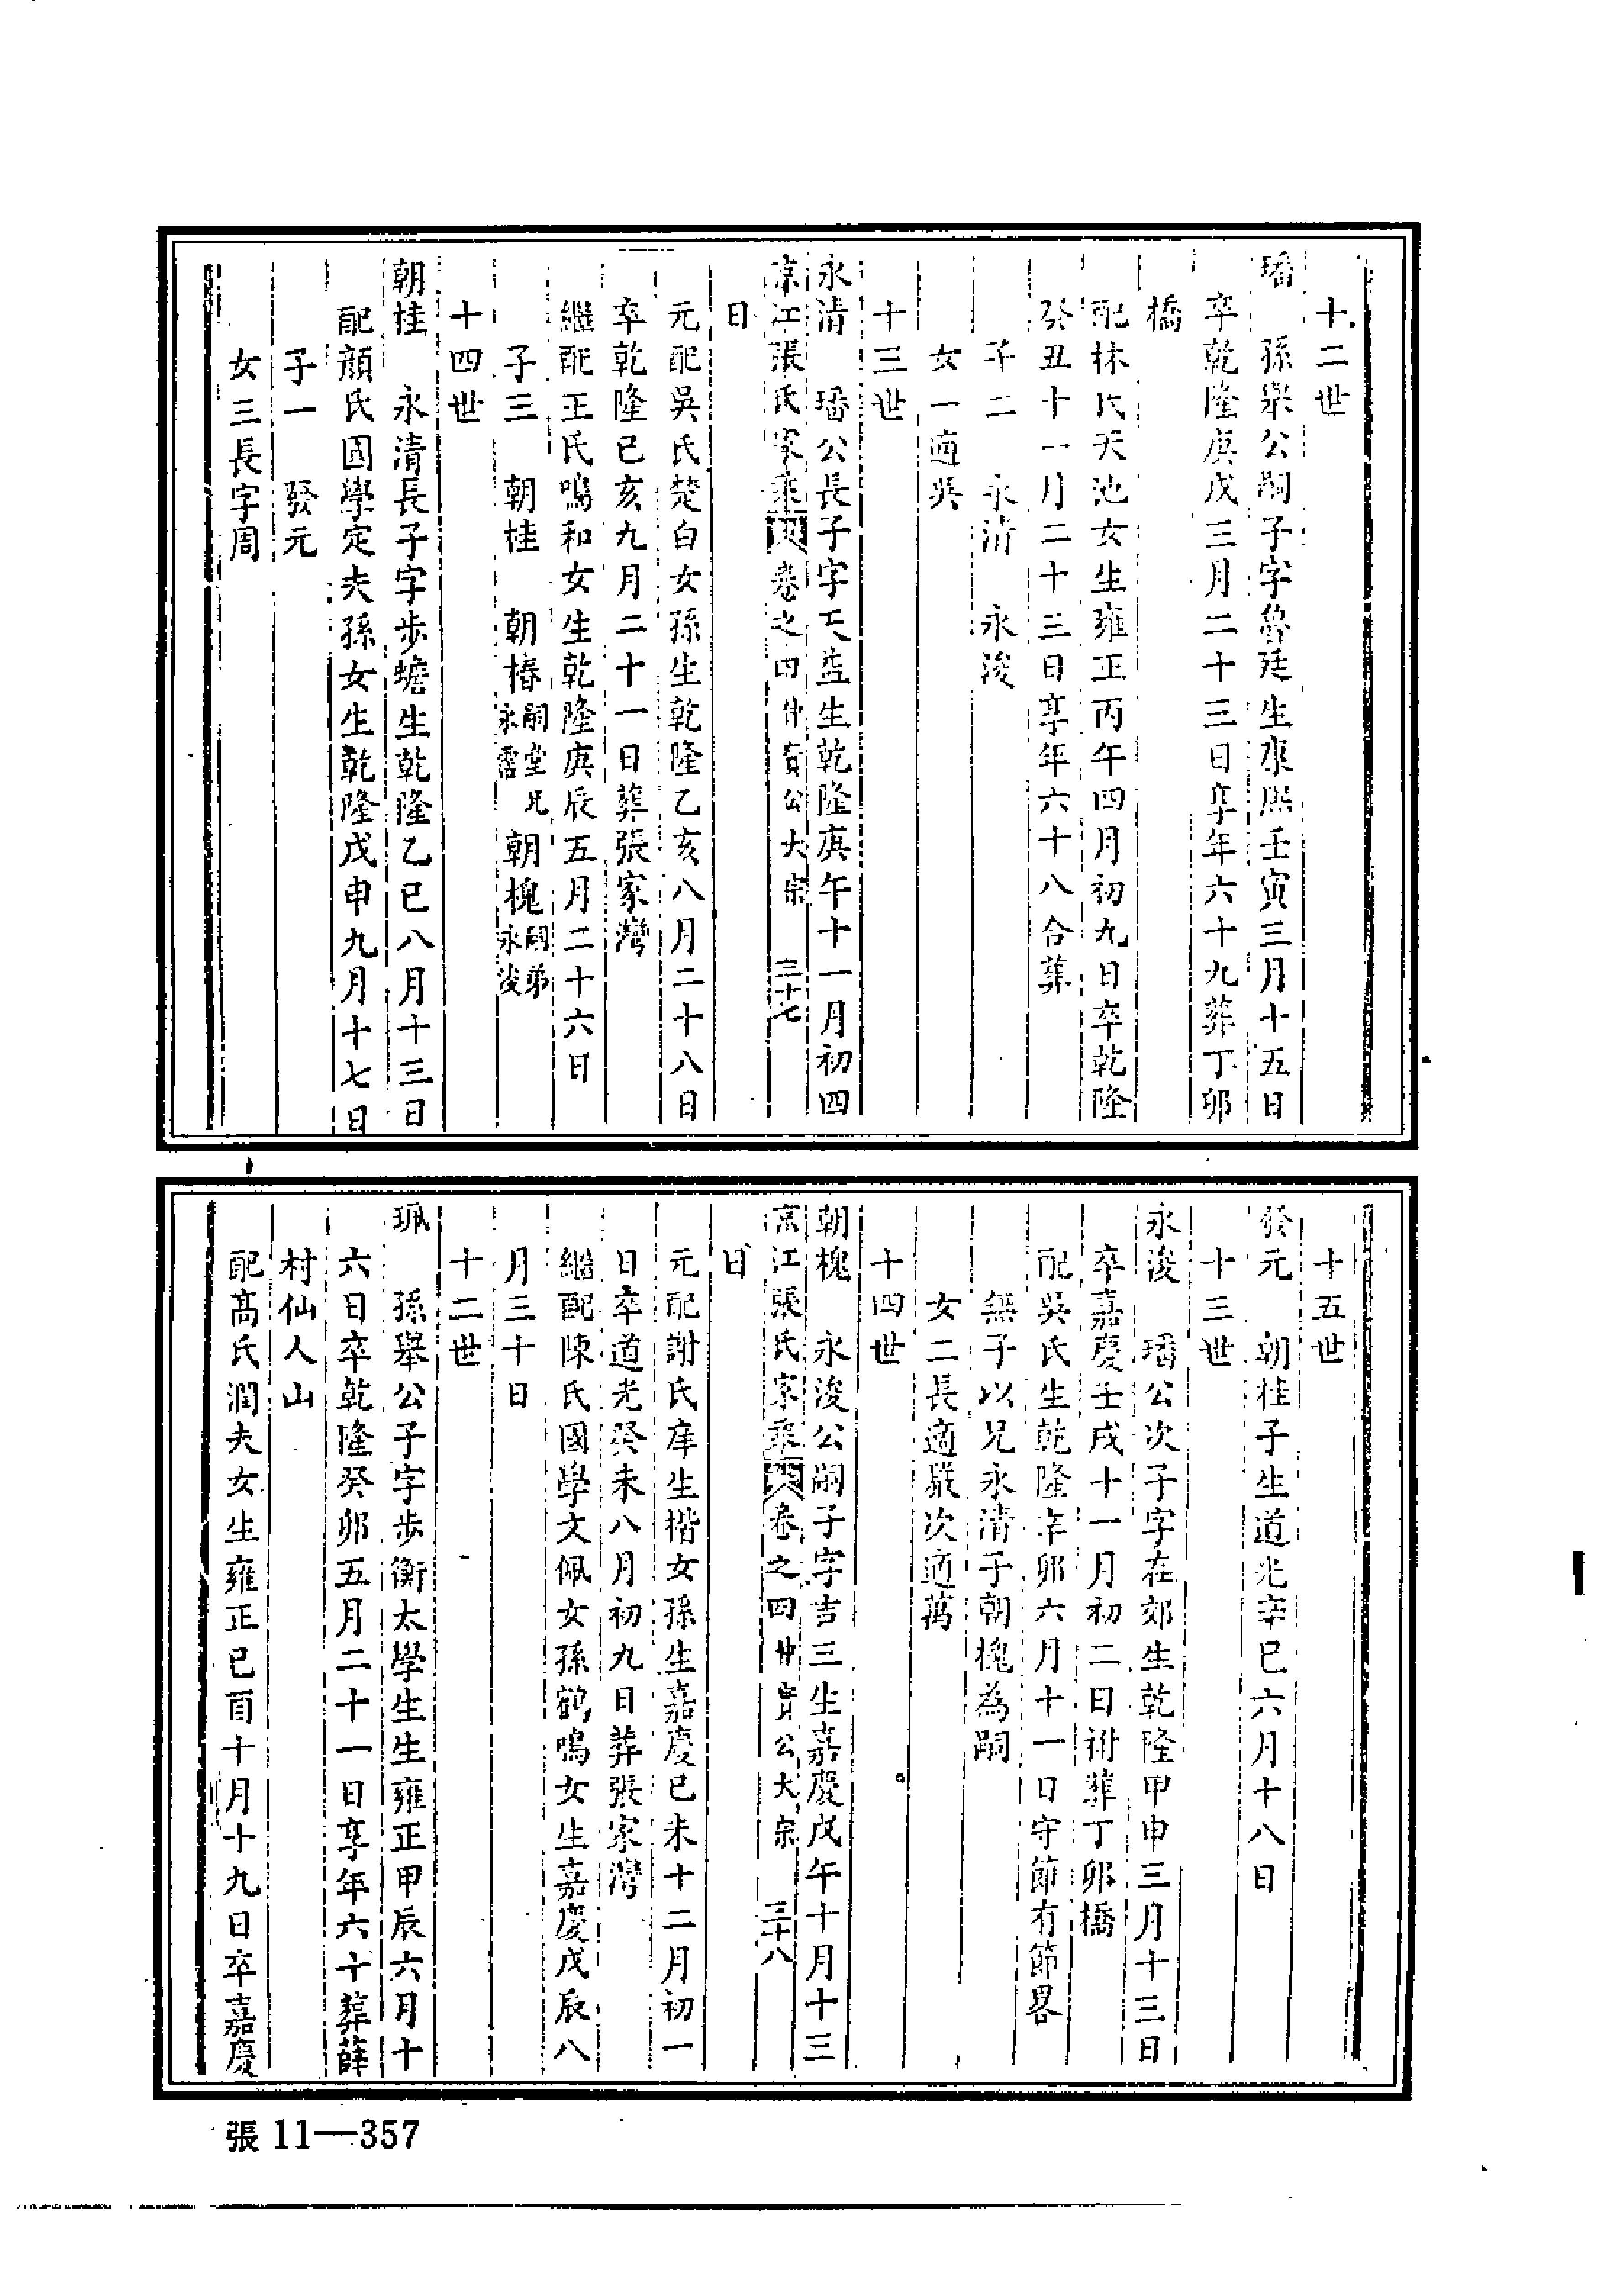 十二世
璠　孫舉公嗣子字魯廷生康熙壬寅三月十五日
卒乾隆庚戌三月二十三日享年六十九葬丁卯
橋
配林氏天池女生雍正丙午四月初九日卒乾隆
癸丑十一月二十三日享年六十八合葬
子二　永清　永浚
女一適吳
十三世
永清　璠公長子字天益生乾隆庚午十一月初四
京江張氏家乘　卷之四　仲實公大宗　三十七
日
元配吳氏楚白女孫生乾隆乙亥八月二十八日
卒乾隆己亥九月二十一日葬張家灣
繼配王氏鳴和女生乾隆庚辰五月二十六日
子三　朝桂　朝椿嗣堂兄永霑朝槐嗣弟永浚
十四世
朝桂　永清長子字步蟾生乾隆乙巳八月十三日
配顏氏國學定夫孫女生乾隆戊申九月十七日
子一　發元
女三長字周
十五世
發元　朝桂子生道光辛巳六月十八日
十三世
永浚　璠公次子字在郊生乾隆甲申三月十三日
卒嘉慶壬戌十一月初二日祔葬丁卯橋
配吳氏生乾隆辛卯六月十一日守節有節畧
無子以兄永清子朝槐為嗣
女二長適嚴次適萬
十四世
朝槐　永浚公嗣子字吉三生嘉慶戊午十月十三
京江張氏家乘　卷之四　仲實公大宗　三十八
日
元配謝氏庠生楷女孫生嘉慶己未十二月初一
日卒道光癸未八月初九日葬張家灣
繼配陳氏國學文佩女孫鶴鳴女生嘉慶戊辰八
月三十日
十二世
珮　孫舉公子字步衡太學生生雍正甲辰六月十
六日卒乾隆癸卯五月二十一日享年六十葬薛
村仙人山
配高氏潤夫女生雍正己酉十月十九日卒嘉慶
張 11—357